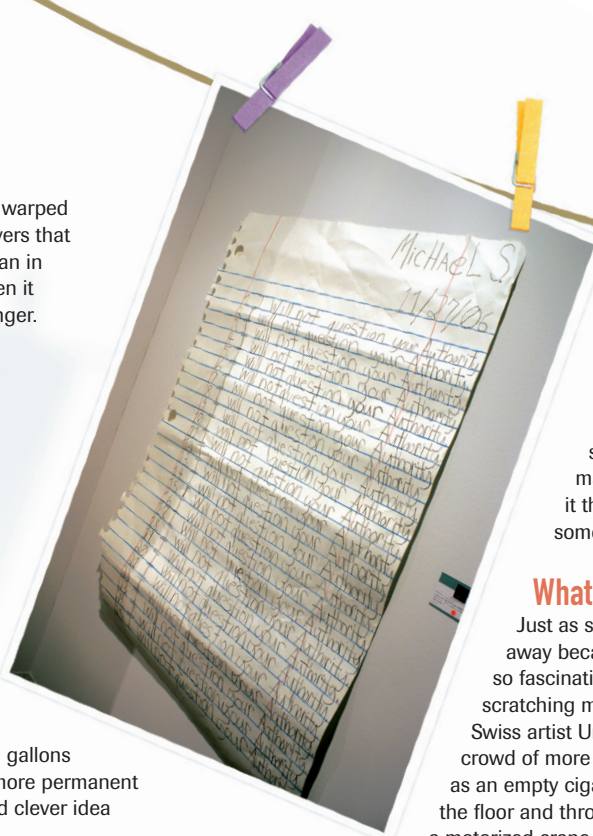 warped
vers that
an in
en it
nger.
gallons
more permanent
d clever idea
MicHAeL S.
11/27/06
I will not question your Authority
I will not question your Authority
I will not question your Authority
I will not question your Authority
I will not question your Authority
I will not question your Authority
I will not question your Authority
I will not question your Authority
I will not question your Authority
I will not question your Authority
I will not question your Authority
I will not question your Authority
I will not question your Authority
I will not question your Authority
I will not question your Authority
I will not question your Authority
I will not question your Authority
I will not question your Authority
s
m
it th
some
What
Just as s
away beca
so fascinati
scratching m
Swiss artist U
crowd of more
as an empty ciga
the floor and thro
a motorized crane